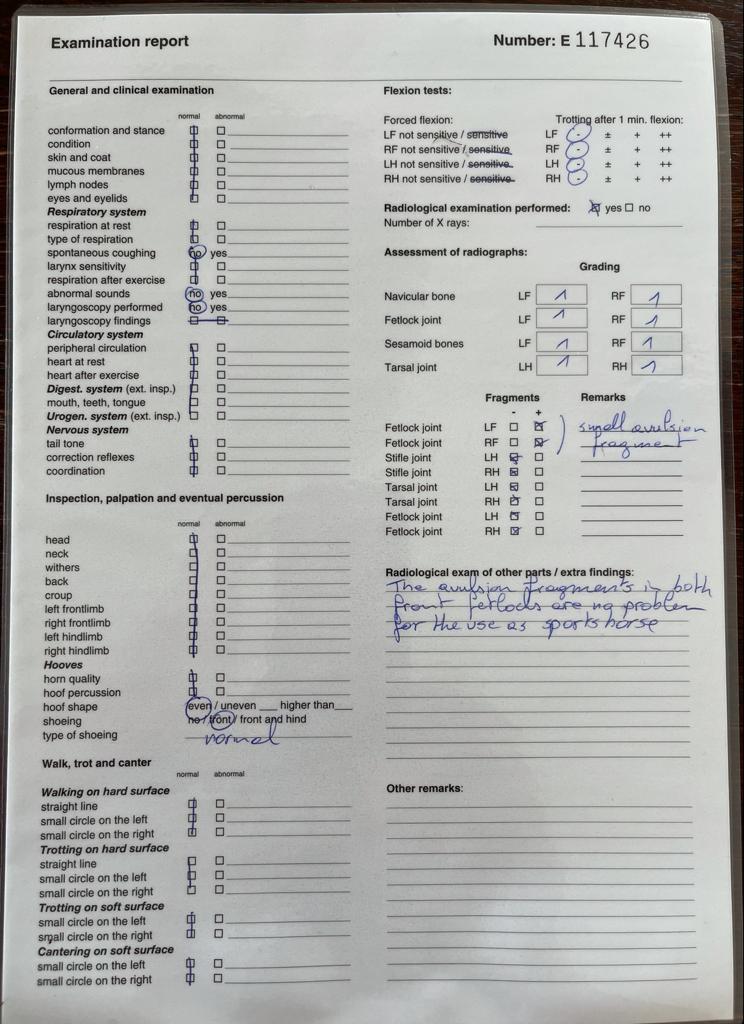 Examination report
Number: E 117426
General and clinical examination
normal abnormal
conformation and stance
condition
skin and coat
mucous membranes
lymph nodes
eyes and eyelids
Respiratory system
respiration at rest
type of respiration
spontaneous coughing no yes
larynx sensitivity
respiration after exercise
abnormal sounds no yes
laryngoscopy performed no yes
laryngoscopy findings
Circulatory system
peripheral circulation
heart at rest
heart after exercise
Digest. system (ext. insp.)
mouth, teeth, tongue
Urogen. system (ext. insp.)
Nervous system
tail tone
correction reflexes
coordination
Inspection, palpation and eventual percussion
normal abnormal
head
neck
withers
back
croup
left frontlimb
right frontlimb
left hindlimb
right hindlimb
Hooves
horn quality
hoof percussion
hoof shape even / uneven ___ higher than___
shoeing no / front / front and hind
type of shoeing normal
Walk, trot and canter
normal abnormal
Walking on hard surface
straight line
small circle on the left
small circle on the right
Trotting on hard surface
straight line
small circle on the left
small circle on the right
Trotting on soft surface
small circle on the left
small circle on the right
Cantering on soft surface
small circle on the left
small circle on the right
Flexion tests:
Forced flexion: Trotting after 1 min. flexion:
LF not sensitive / sensitive LF - ± + ++
RF not sensitive / sensitive RF - ± + ++
LH not sensitive / sensitive LH - ± + ++
RH not sensitive / sensitive RH - ± + ++
Radiological examination performed: yes no
Number of X rays:
Assessment of radiographs:
Grading
Navicular bone LF 1 RF 1
Fetlock joint LF 1 RF 1
Sesamoid bones LF 1 RF 1
Tarsal joint LH 1 RH 1
Fragments Remarks
- +
Fetlock joint LF small avulsion
Fetlock joint RF fragment
Stifle joint LH
Stifle joint RH
Tarsal joint LH
Tarsal joint RH
Fetlock joint LH
Fetlock joint RH
Radiological exam of other parts / extra findings:
The avulsion fragments in both
front fetlocks are no problem
for the use as sportshorse
Other remarks: